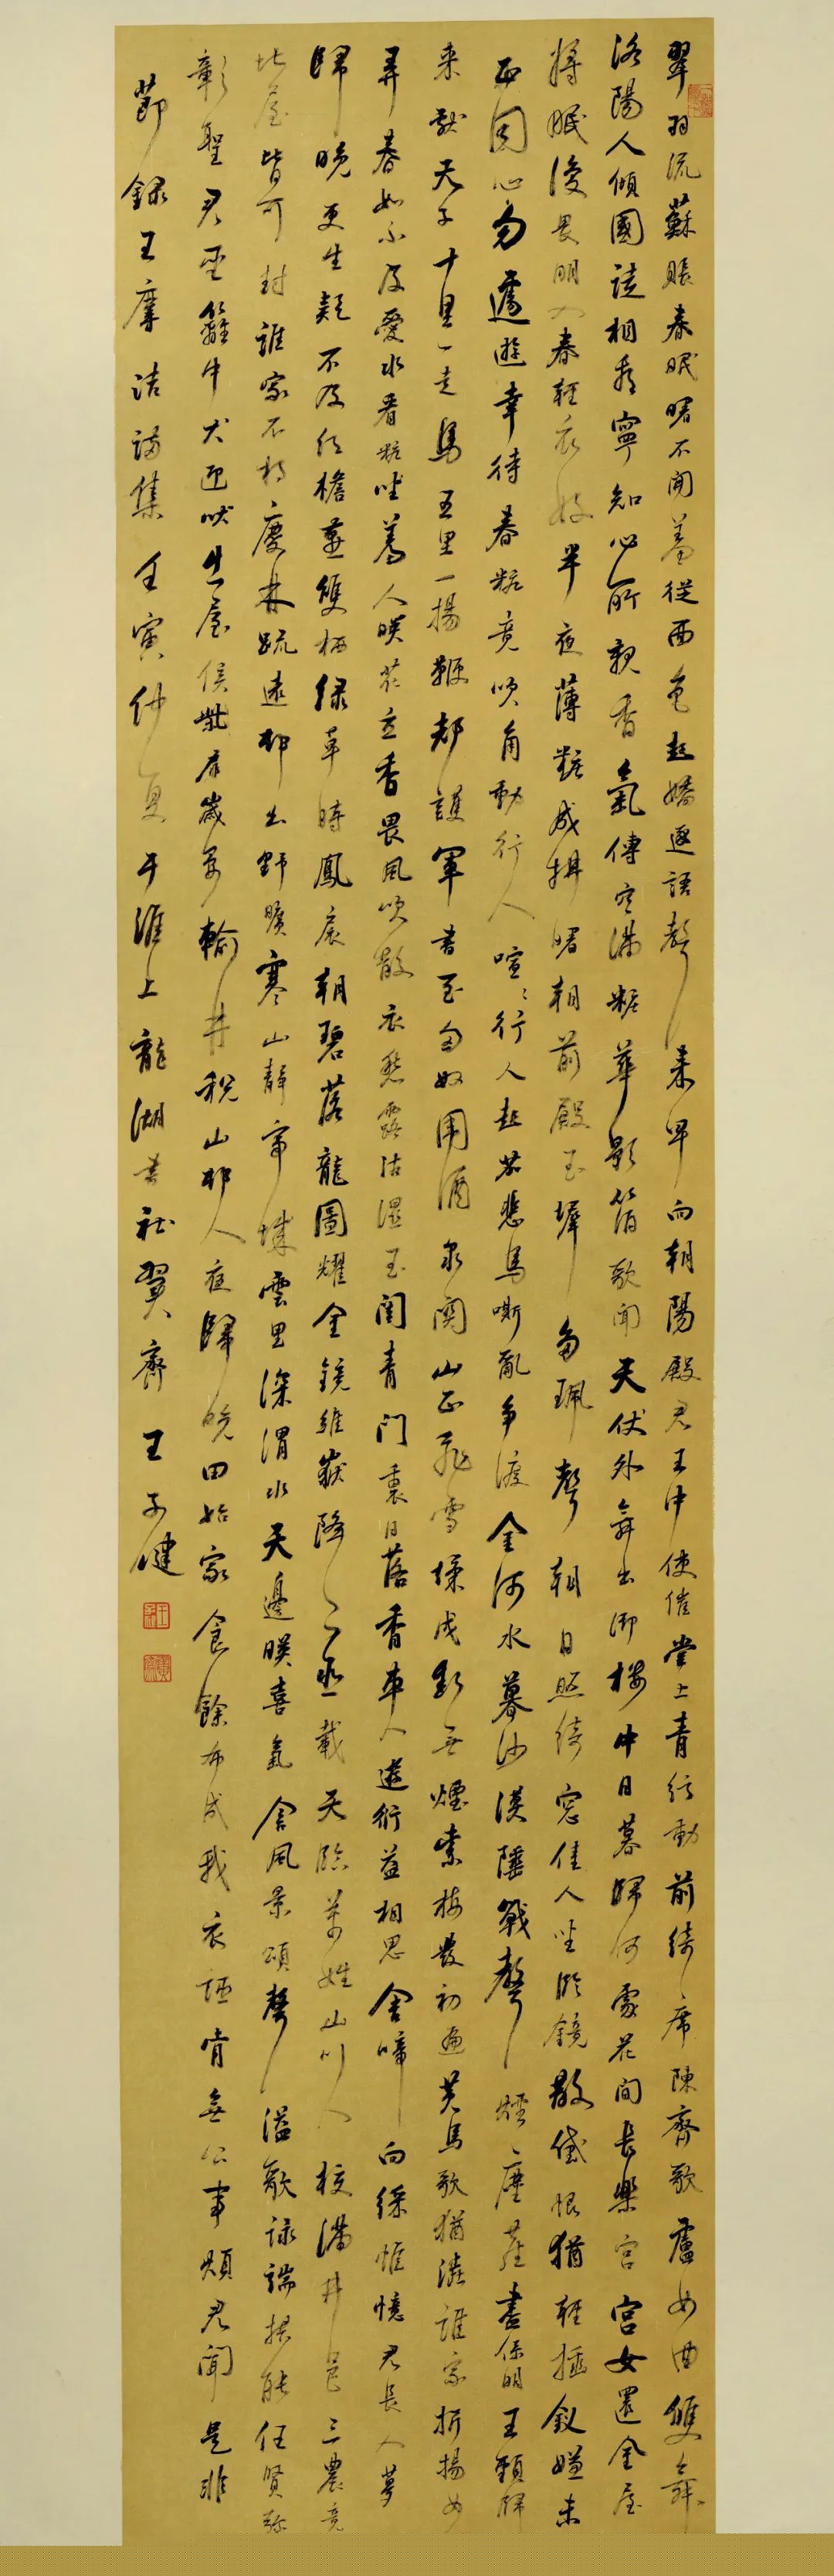 翠羽流蘇賬春眠曙不開羞從面色起嬌逐語聲來早向朝陽殿君王中使催堂上青弦動前綺席陳齊歌盧女曲雙舞
洛陽人傾國徒相看寧知心所親香氣傳空滿粧華影箔歌聞天仗外舞出御樓中日暮歸何處花間長樂宮宮女還金屋
將眠復畏明入春輕衣好半夜薄粧成拂曙朝前殿玉墀多珮聲朝日照綺窓佳人坐臨鏡散黛恨猶輕插釵嫌未
正同心勿遽遊幸待春粧竟吹角動行人喧喧行人起笳悲馬嘶亂爭渡金河水暮沙漠陲戰聲煙塵裏盡係明王頸歸
來獻天子十里一走馬五里一揚鞭都護軍書至匈奴圍酒泉關山正飛雪烽戍斷無煙素梅發初遍黃鳥歌猶澁誰家折揚女
弄春如不及愛水看粧坐羞人映花立香畏風吹散衣愁露沾濕玉閨青門裏日落香車入遊衍益相思含啼向綵帷憶君長入夢
歸晚更生疑不及紅檐燕雙栖綠草時鳳扆朝碧落龍圖耀金鏡維嶽降二臣戴天臨萬姓山川八校滿井邑三農竟
比屋皆可封誰家不相慶林疏遠邨出野曠寒山靜帝城雲里深渭水天邊映喜氣含風景頌聲溢歌詠端拱能任賢彌
彰聖君聖籬中犬迎吠出屋候柴扉歲晏輸井稅山邨人夜歸晚田始家食餘布成我衣詎肯無公事煩君問是非
節錄王摩詰詩集壬寅仲夏于淮上龍湖書社翼齋王子健